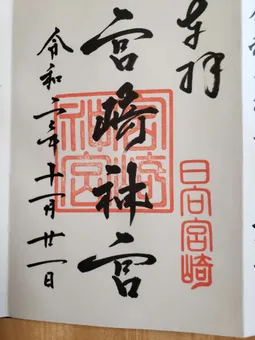 奉拝
日向宮崎
宮崎神宮
宮崎
神宮
令和二年十一月廿一日